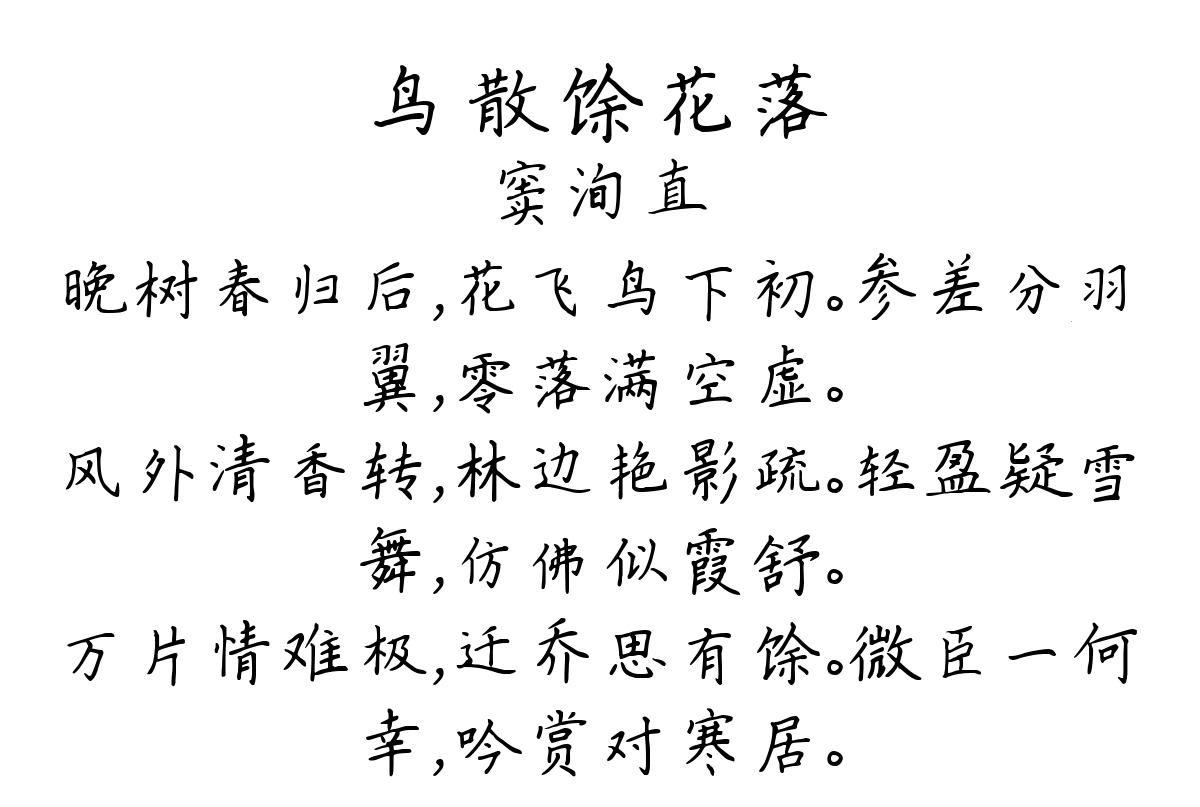 鸟散馀花落
窦洵直
晚树春归后,花飞鸟下初。参差分羽
翼,零落满空虚。
风外清香转,林边艳影疏。轻盈疑雪
舞,仿佛似霞舒。
万片情难极,迁乔思有馀。微臣一何
幸,吟赏对寒居。